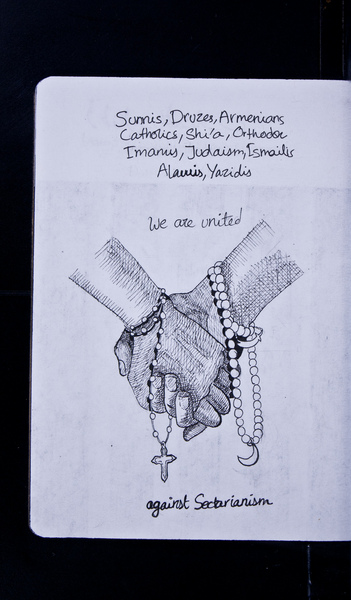 Sunnis, Druzes, Armenians
Catholics, Shi'a, Orthodox
Imamis, Judaism, Ismailis
Alawis, Yazidis
We are united
against Sectarianism